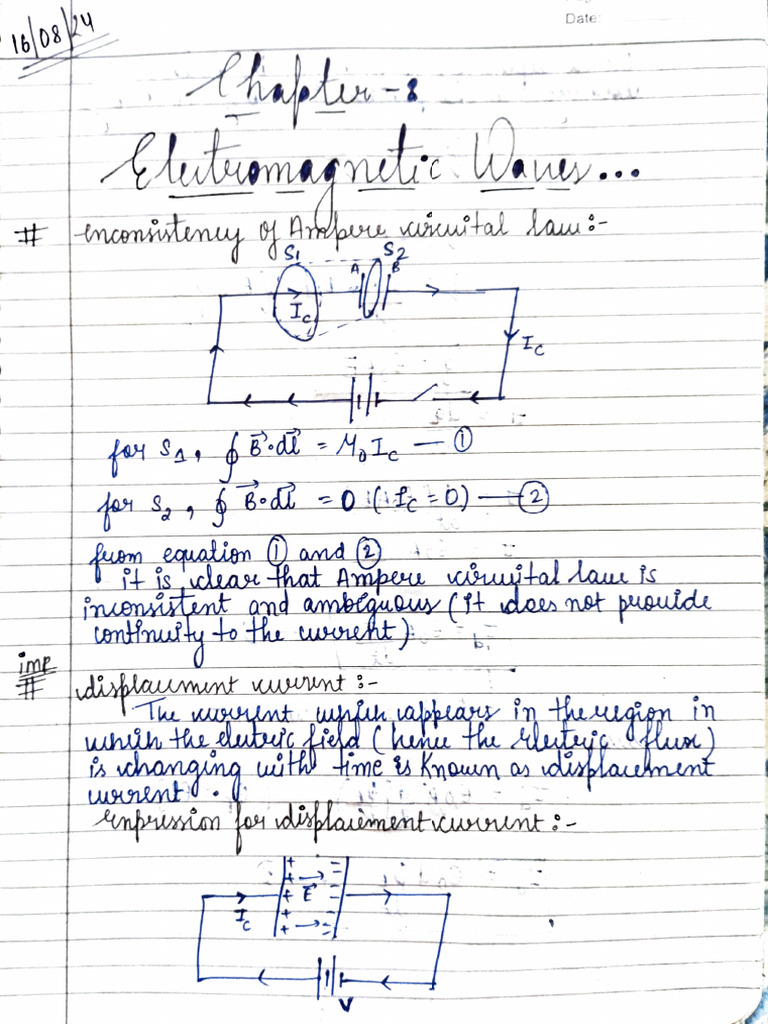 Date:
16/08/24
Chapter - 8
Electromagnetic Waves...
# enconsistency of Ampere circuital law :-
S1 S2
A B
Ic
Ic
for S1, ∮ B⃗·dl⃗ = μ0 Ic — ①
for S2, ∮ B⃗·dl⃗ = 0 (Ic = 0) — ②
from equation ① and ②
it is clear that Ampere circuital law is
inconsistent and ambiguous (it does not provide
continuity to the current).
imp
# displacement current :-
The current which appears in the region in
which the electric field (hence the electric flux)
is changing with time is known as displacement
current.
expression for displacement current :-
+ + + + + − − − − −
E⃗
Ic
V